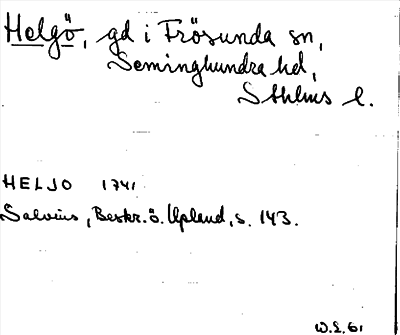 Helgö, gd i Frösunda sn,
Seminghundra hd,
Sthlms l.
HELJO 1741
Salvius, Beskr. ö. Upland, s. 143.
W.L. 61